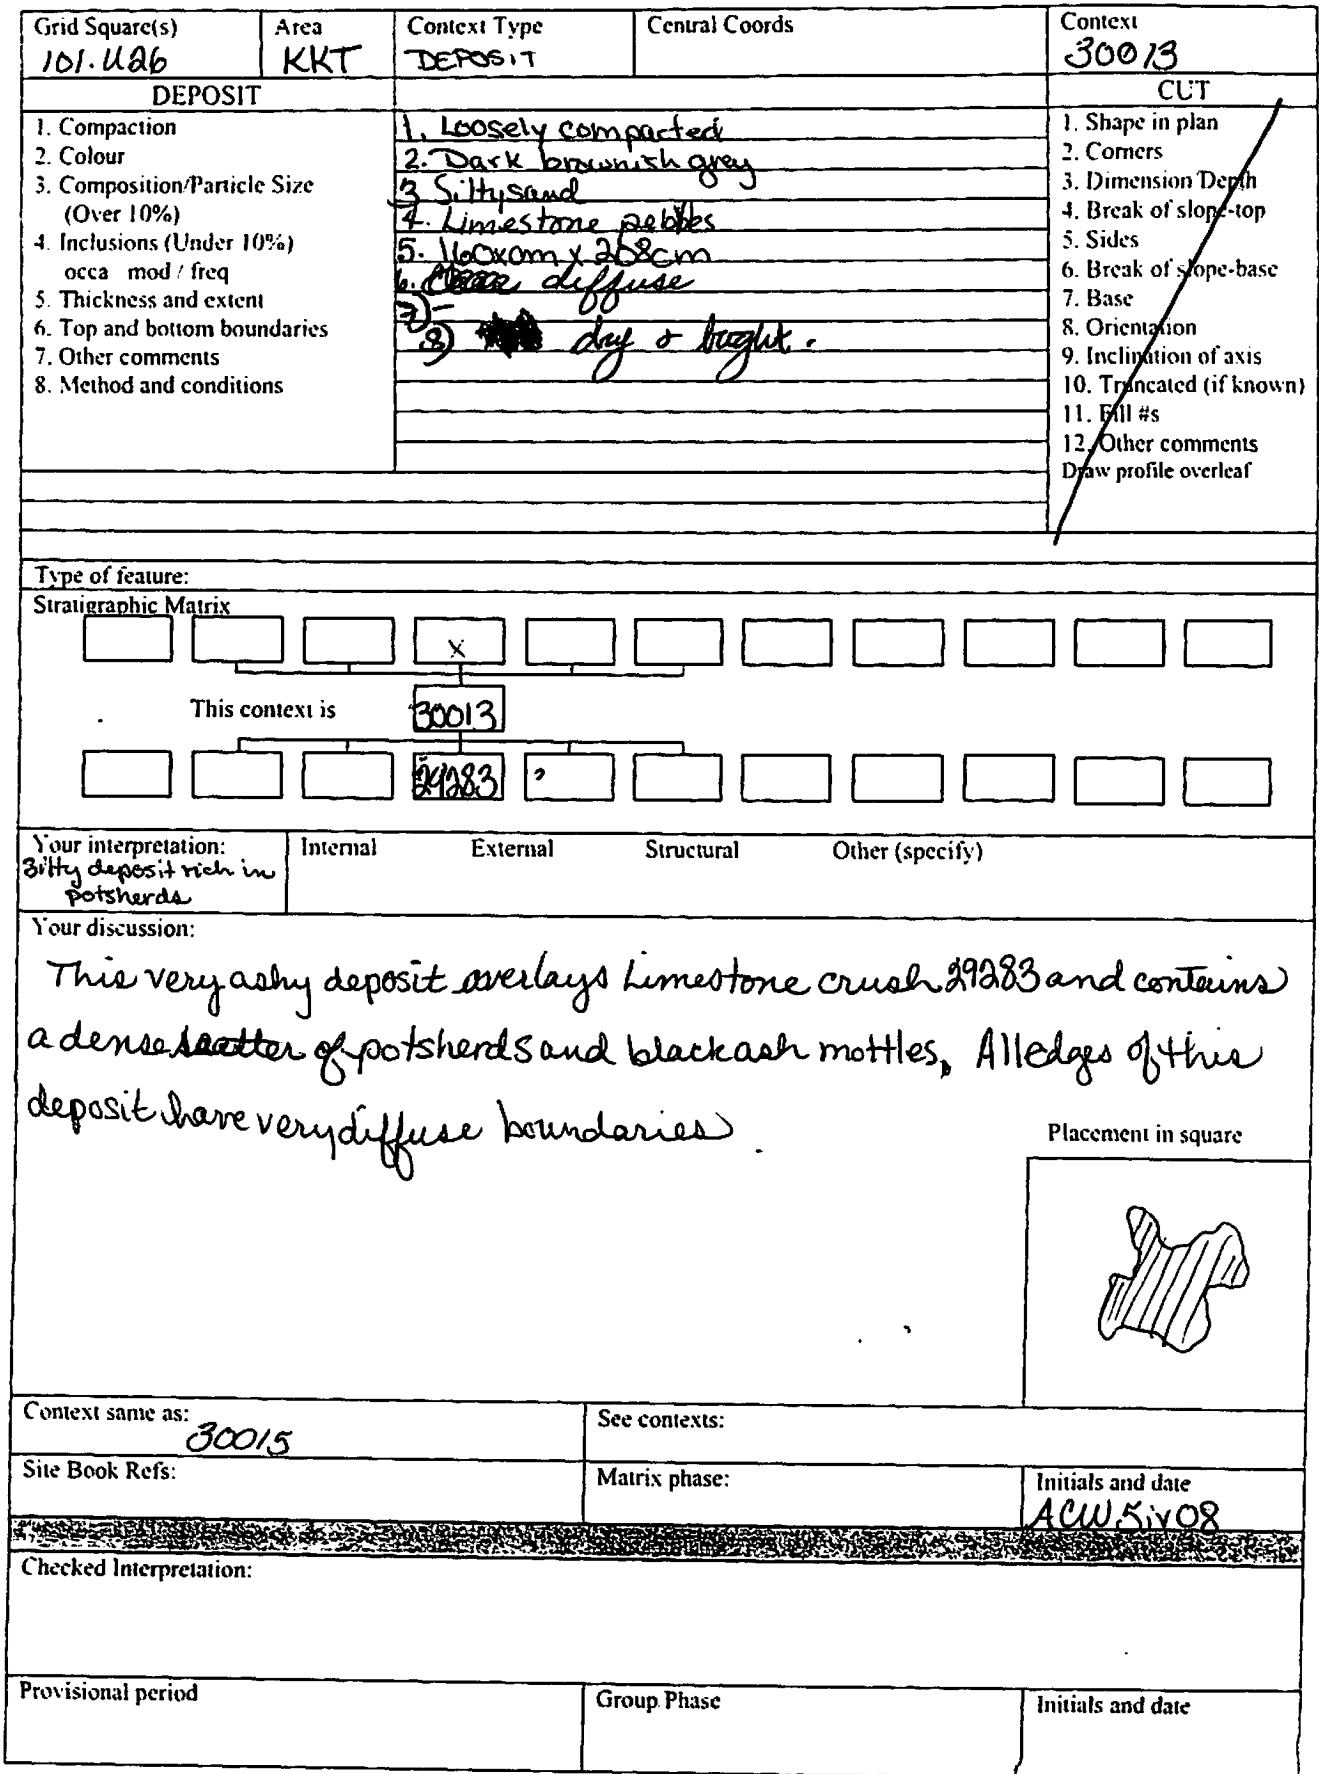 Grid Square(s) Area Context Type Central Coords Context
101.U26 KKT DEPOSIT 30013
DEPOSIT CUT
1. Compaction
2. Colour
3. Composition/Particle Size
(Over 10%)
4. Inclusions (Under 10%)
occa mod / freq
5. Thickness and extent
6. Top and bottom boundaries
7. Other comments
8. Method and conditions
1. Loosely compacted
2. Dark brownish grey
3 Silty sand
4. Limestone pebbles
5. 160xcm x 208cm
6. diffuse
7) -
8) dry & bright.
1. Shape in plan
2. Corners
3. Dimension/Depth
4. Break of slope-top
5. Sides
6. Break of slope-base
7. Base
8. Orientation
9. Inclination of axis
10. Truncated (if known)
11. Fill #s
12. Other comments
Draw profile overleaf
Type of feature:
Stratigraphic Matrix
X
This context is 30013
29283
Your interpretation: Internal External Structural Other (specify)
Silty deposit rich in
potsherds
Your discussion:
This very ashy deposit overlays Limestone crush 29283 and contains
a dense scatter of potsherds and black ash mottles. All edges of this
deposit have very diffuse boundaries.
Placement in square
Context same as: See contexts:
30015
Site Book Refs: Matrix phase: Initials and date
ACW 5iv08
Checked Interpretation:
Provisional period Group Phase Initials and date